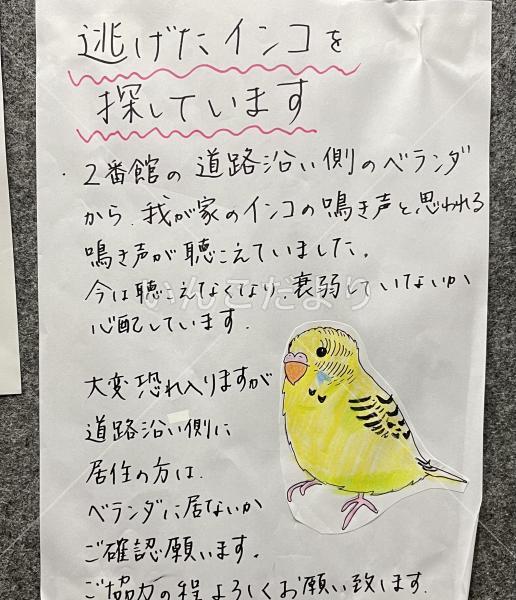 逃げたインコを
探しています
・2番館の道路沿い側のベランダ
から、我が家のインコの鳴き声と思われる
鳴き声が聴こえていました。
今は聴こえなくなり、衰弱していないか
心配しています。
大変恐れ入りますが
道路沿い側に
居住の方は、
ベランダに居ないか
ご確認願います。
ご協力の程よろしくお願い致します。